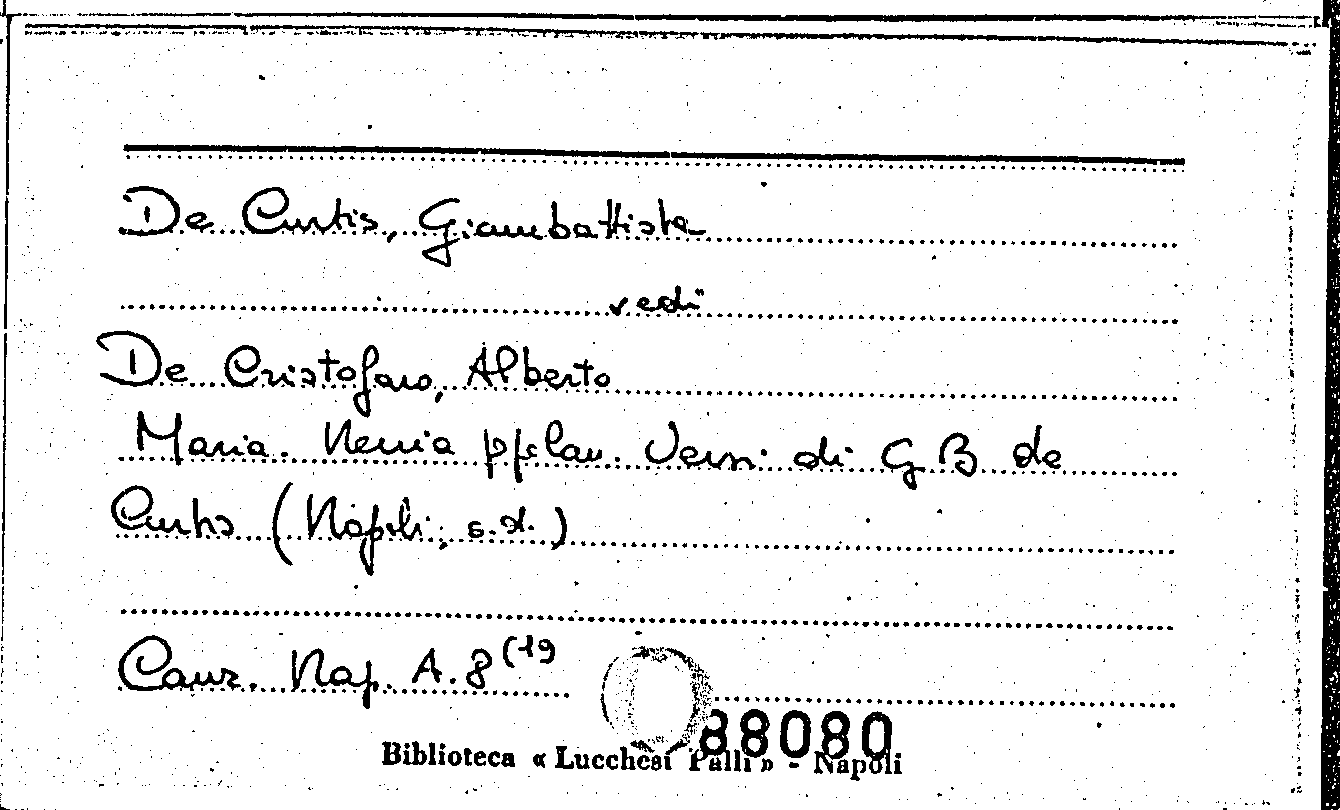 De Curtis, Giambattista
vedi
De Cristofaro, Alberto
Maria. Nenia popolare. Versi di G B de
Curtis (Napoli, s.d.)
Canz. Nap. A. 8 (19
88080
Biblioteca « Lucchesi Palli » - Napoli